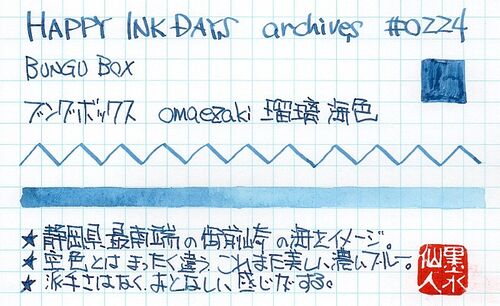 HAPPY INK DAYS archives #0224
BUNGU BOX
ブングボックス omaezaki 瑠璃海色
★静岡県最南端の御前崎の海をイメージ。
★空色とはまったく違う、これまた美しい濃いブルー。
★派手さはなく、おとなしい感じがする。
墨水仙人